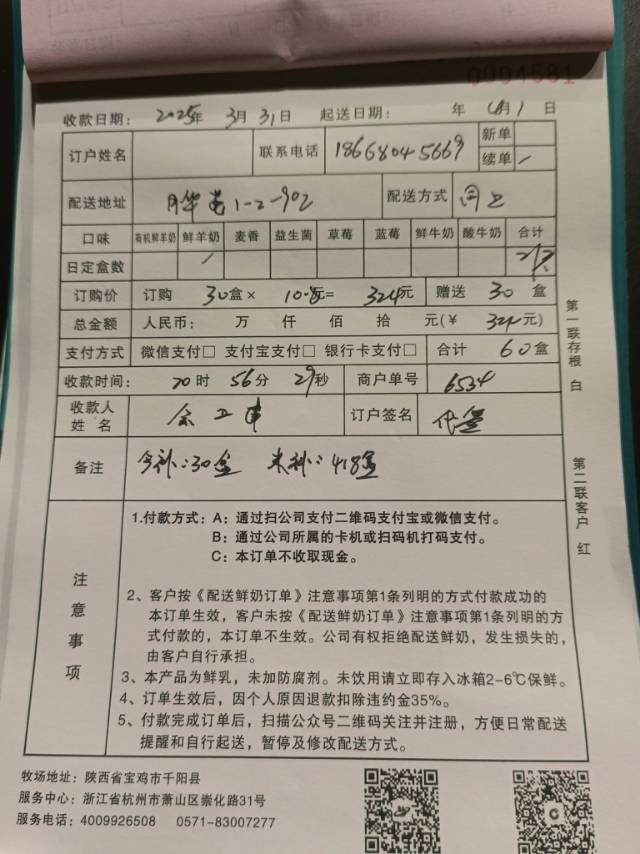 0004581
收款日期： 2025年 3月 31日 起送日期： 年 4月 1 日
订户姓名 联系电话 18668045669 新单
续单 /
配送地址 月华苑1-2-902 配送方式 周
口味 有机鲜羊奶 鲜羊奶 麦香 益生菌 草莓 蓝莓 鲜牛奶 酸牛奶 合计
日定盒数 /
订购价 订购 30盒× 10.8元= 324元 赠送 30 盒
总金额 人民币： 万 仟 佰 拾 元(￥ 324元)
支付方式 微信支付□ 支付宝支付□ 银行卡支付□ 合计 60盒
收款时间： 20时 56分 29秒 商户单号 6534
收款人姓名 订户签名 代签
备注 今补：30盒 未补：418盒
注意事项
1.付款方式：A：通过扫公司支付二维码支付宝或微信支付。
B：通过公司所属的卡机或扫码机打码支付。
C：本订单不收取现金。
2、客户按《配送鲜奶订单》注意事项第1条列明的方式付款成功的
本订单生效，客户未按《配送鲜奶订单》注意事项第1条列明的方
式付款的，本订单不生效。公司有权拒绝配送鲜奶，发生损失的，
由客户自行承担。
3、本产品为鲜乳，未加防腐剂。未饮用请立即存入冰箱2-6℃保鲜。
4、订单生效后，因个人原因退款扣除违约金35%。
5、付款完成订单后，扫描公众号二维码关注并注册，方便日常配送
提醒和自行起送，暂停及修改配送方式。
第一联存根 白
第二联客户 红
牧场地址：陕西省宝鸡市千阳县
服务中心：浙江省杭州市萧山区崇化路31号
服务电话：4009926508 0571-83007277